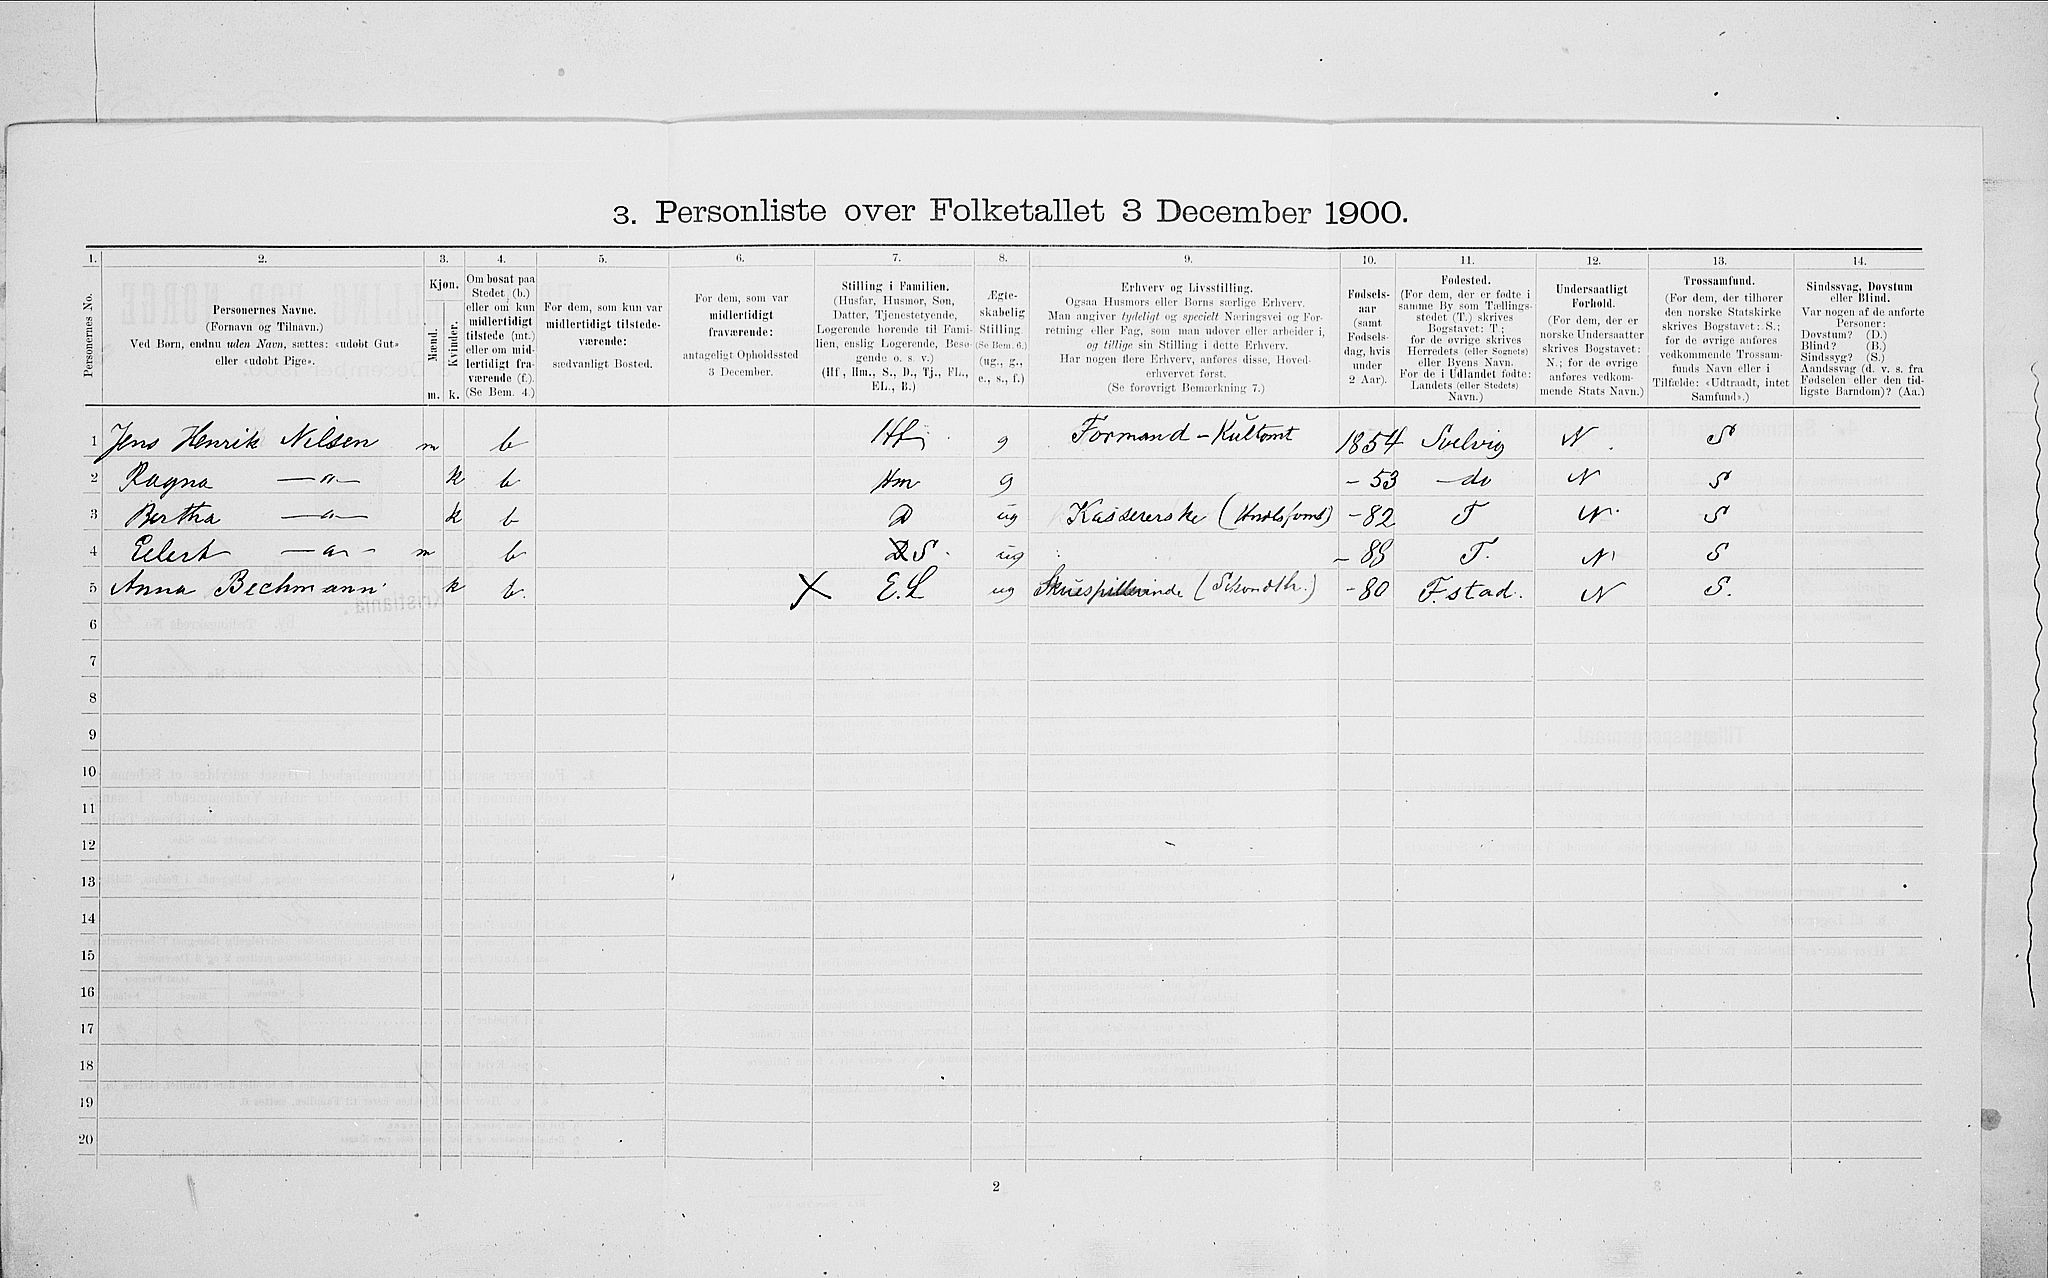 3. Personliste over Folketallet 3 December 1900.
1. 2. 3. 4. 5. 6. 7. 8. 9. 10. 11. 12. 13. 14.
Personernes No.
Personernes Navne.
(Fornavn og Tilnavn.)
Ved Børn, endnu uden Navn, sættes: «udøbt Gut»
eller «udøbt Pige».
Kjøn.
Mænd.
Kvinder.
m. k.
Om bosat paa
Stedet (b.)
eller om kun
midlertidigt
tilstede (mt.)
eller om mid-
lertidigt fra-
værende (f.).
(Se Bem. 4.)
For dem, som kun var
midlertidigt tilstede-
værende:
sædvanligt Bosted.
For dem, som var
midlertidigt
fraværende:
antageligt Opholdssted
3 December.
Stilling i Familien.
(Husfar, Husmor, Søn,
Datter, Tjenestetyende,
Logerende hørende til Fami-
lien, enslig Logerende, Besø-
gende o. s. v.)
(Hf., Hm., S., D., Tj., FL.,
EL., B.)
Ægte-
skabelig
Stilling
(Se Bem. 6.)
(ug., g.,
e., s., f.)
Erhverv og Livsstilling.
Ogsaa Husmors eller Børns særlige Erhverv.
Man angiver tydeligt og specielt Næringsvei og For-
retning eller Fag, som man udøver eller arbeider i,
og tillige sin Stilling i dette Erhverv.
Har nogen flere Erhverv, anføres disse, Hoved-
erhvervet først.
(Se forøvrigt Bemærkning 7.)
Fødsels-
aar
(samt
Fødsels-
dag, hvis
under
2 Aar).
Fødested.
(For dem, der er fødte i
samme By som Tællings-
stedet (T.) skrives
Bogstavet: T;
for de øvrige skrives
Herredets (eller Sognets)
eller Byens Navn.
For de i Udlandet fødte:
Landets (eller Stedets)
Navn.)
Undersaatligt
Forhold.
(For dem, der er
norske Undersaatter
skrives Bogstavet:
N.; for de øvrige
anføres vedkom-
mende Stats Navn.)
Trossamfund.
(For dem, der tilhører
den norske Statskirke
skrives Bogstavet: S.;
for de øvrige anføres
vedkommende Trossam-
funds Navn eller i
Tilfælde: «Udtraadt, intet
Samfund».)
Sindssvag, Døvstum
eller Blind.
Var nogen af de anførte
Personer:
Døvstum? (D.)
Blind? (B.)
Sindssyg? (S.)
Aandssvag (d. v. s. fra
Fødselen eller den tid-
ligste Barndom)? (Aa.)
1 Jens Henrik Nilsen m b Hf g Formand - Kultomt 1854 Svelvig N. S
2 Ragna —„— k b Hm g - 53 - do N S
3 Bertha —„— k b D ug Kassererske - 82 T N S
4 Eilert —„— m b D S. ug T. N S
5 Anna Bechmann k b. X E. L ug Skuespillerinde (Sekondth.) - 80 F.stad. N S.
6
7
8
9
10
11
12
13
14
15
16
17
18
19
20
2